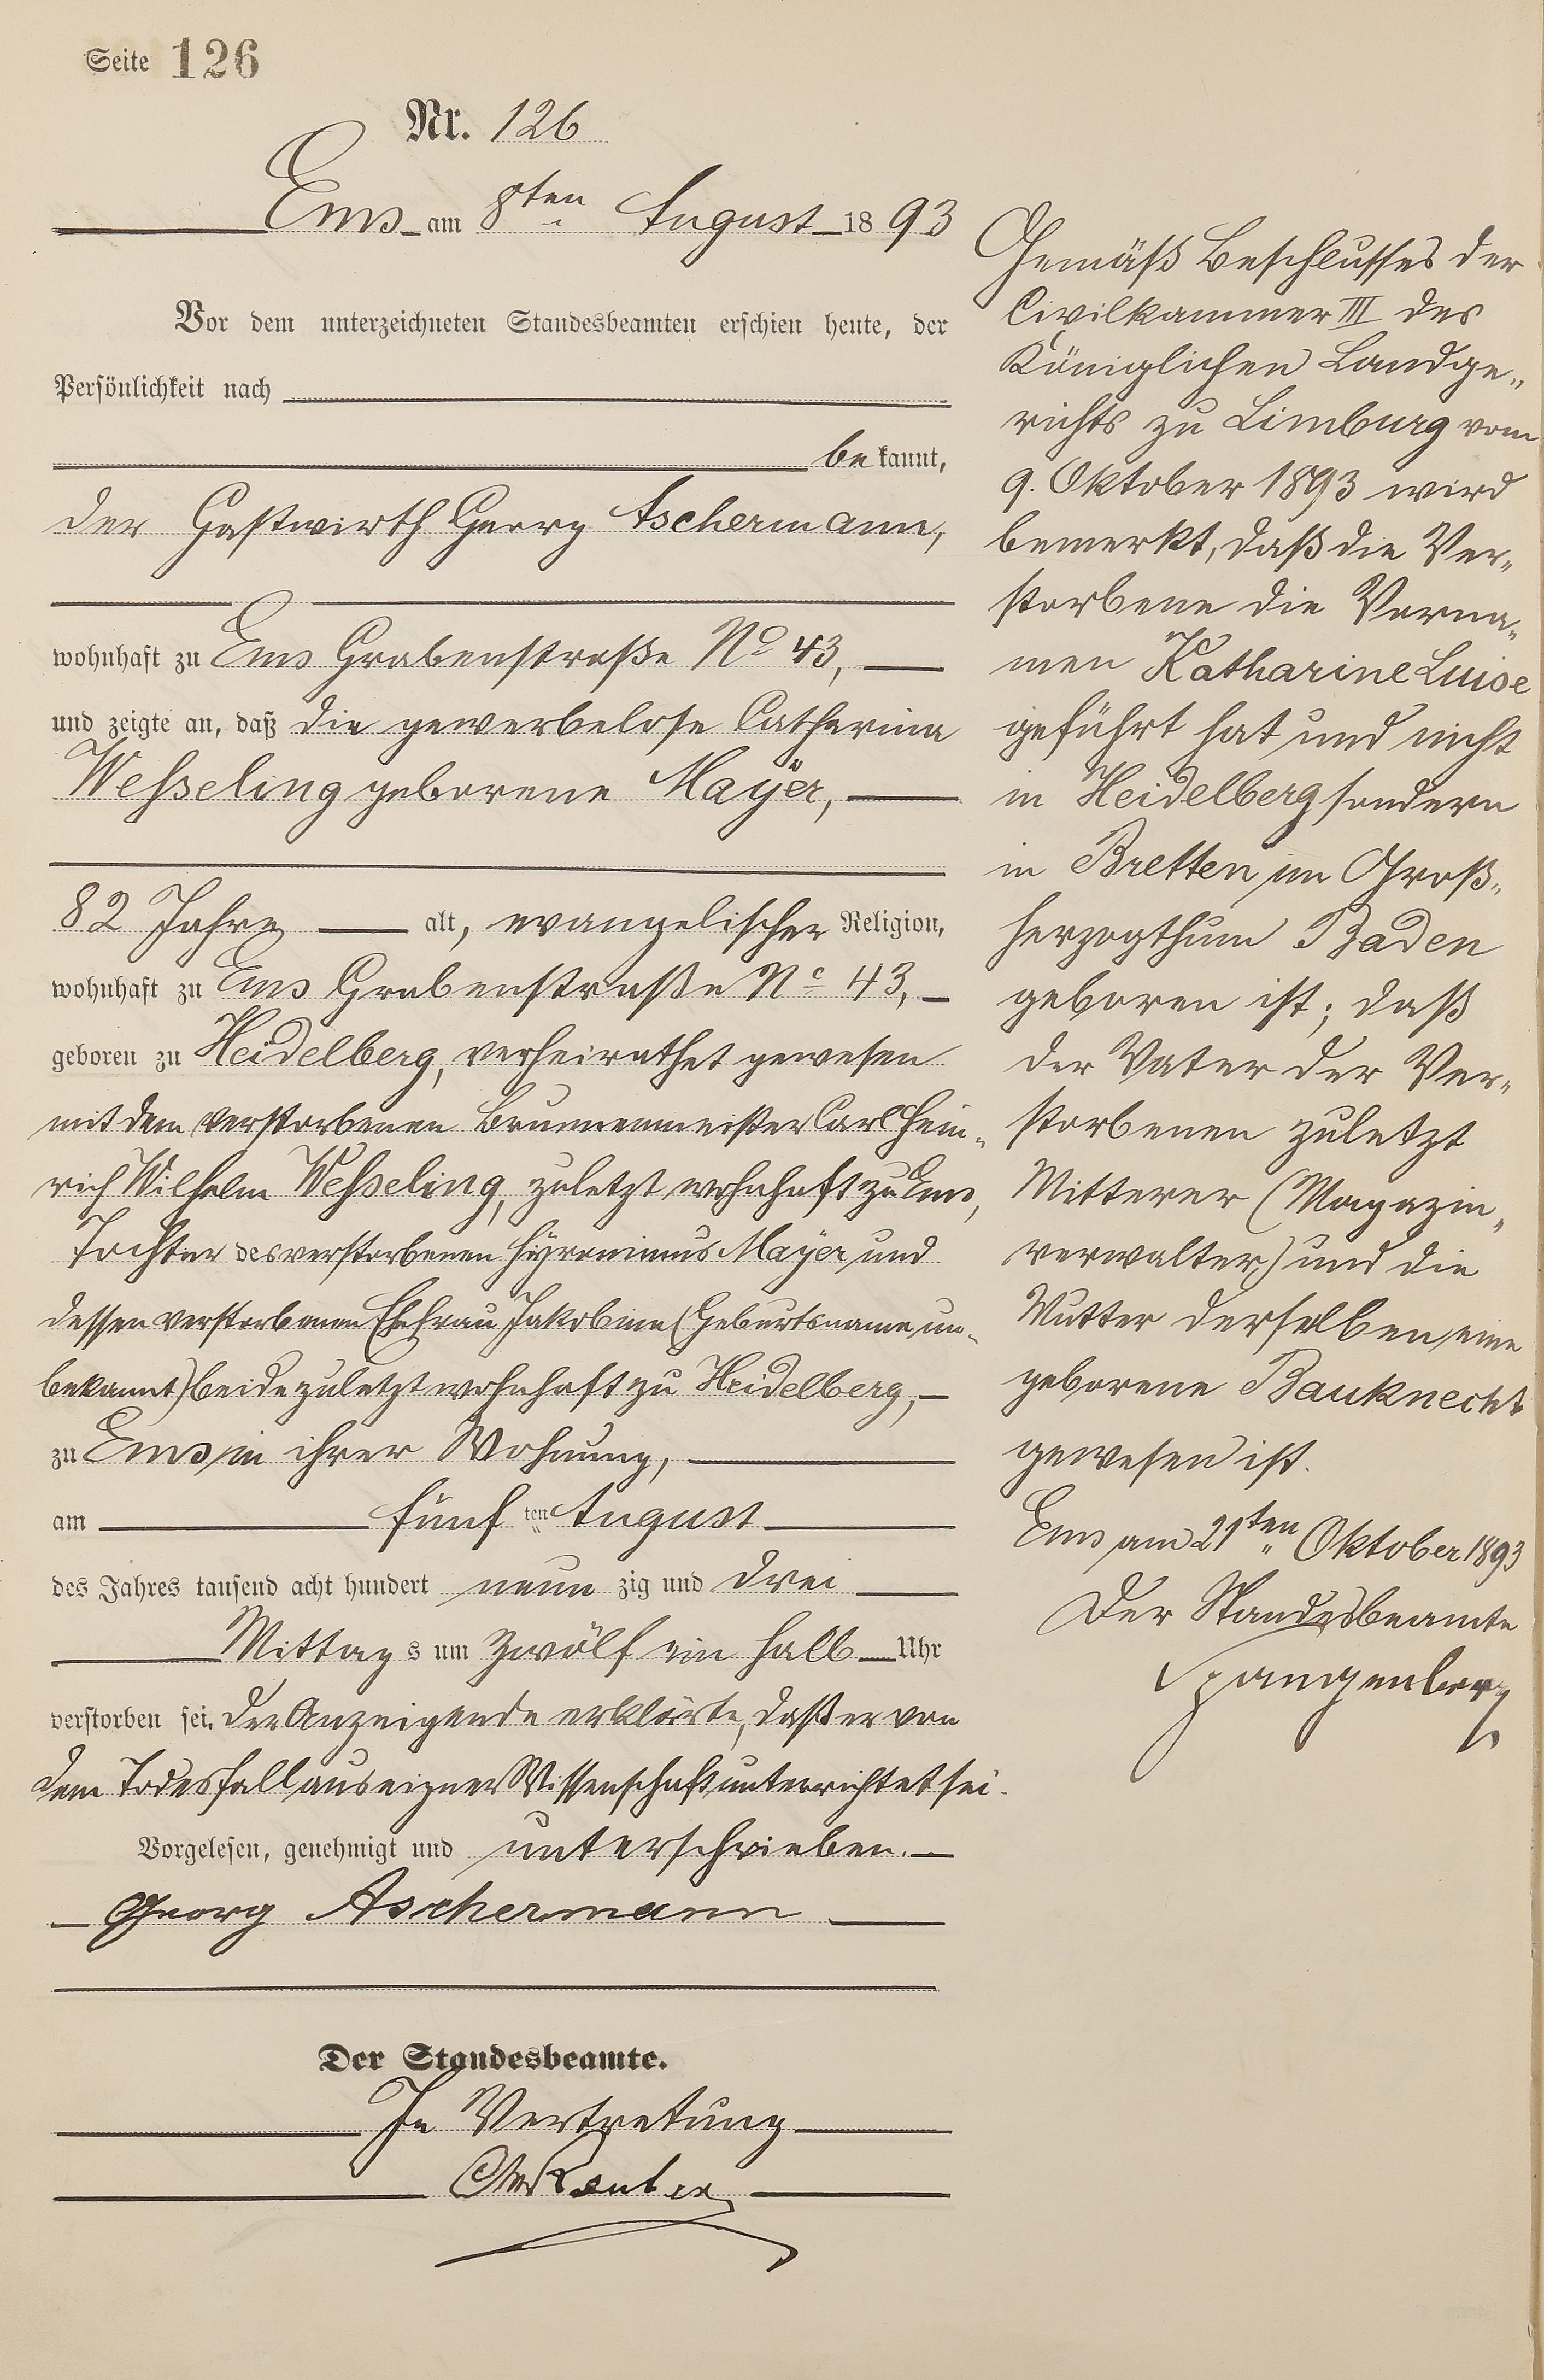 Seite 126
Nr. 126
Ems am 8ten August 1893
Vor dem unterzeichneten Standesbeamten erschien heute, der
Persönlichkeit nach
bekannt,
der Gastwirth Georg Aschermann,
wohnhaft zu Ems Grabenstraße No 43,
und zeigte an, daß die gewerbelose Catharina
Weßseling geborene Mayër,
82 Jahre alt, evangelischer Religion,
wohnhaft zu Ems Grabenstraße No 43,
geboren zu Heidelberg, verheirathet gewesen
mit dem verstorbenen Brunnenmeister Carl Hein-
rich Wilhelm Weßseling, zuletzt wohnhaft zu Ems,
Tochter des verstorbenen Hÿronimus Maÿer und
dessen verstorbenen Ehefrau Jakobine (Geburtsname un-
bekannt) beide zuletzt wohnhaft zu Heidelberg,
zu Ems in ihrer Wohnung,
am fünften August
des Jahres tausend acht hundert neunzig und drei
Mittags um zwölf ein halb Uhr
verstorben sei. Der Anzeigende erklärte, daß er von
dem Todesfall aus eigner Wissenschaft unterrichtet sei.
Vorgelesen, genehmigt und unterschrieben.
Georg Aschermann
Der Standesbeamte.
In Vertretung
Gemäß Beschlusses der
Civilkammer III des
Königlichen Landge-
richts zu Limburg vom
9. Oktober 1893 wird
bemerkt, daß die Ver-
storbene die Vorna-
men Katharine Luise
geführt hat und nicht
in Heidelberg sondern
in Bretten im Groß-
herzogthum Baden
geboren ist; daß
der Vater der Ver-
storbenen zuletzt
Mitterer (Magazin-
verwalter) und die
Mutter derselben eine
geborene Bauknecht
gewesen ist.
Ems am 21ten Oktober 1893
Der Standesbeamte
Spangenberg